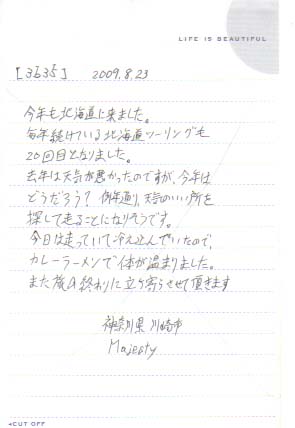 LIFE IS BEAUTIFUL
[3635] 2009.8.23
今年も北海道に来ました。
毎年続けている北海道ツーリングも
20回目となりました。
去年は天気が悪かったのですが、今年は
どうだろう? 例年通り、天気のいい所を
探して走ることになりそうです。
今日は走っていて冷え込んでいたので、
カレーラーメンで体が温まりました。
また旅の終わりに立ち寄らせて頂きます
神奈川県 川崎市
Majesty
CUT OFF